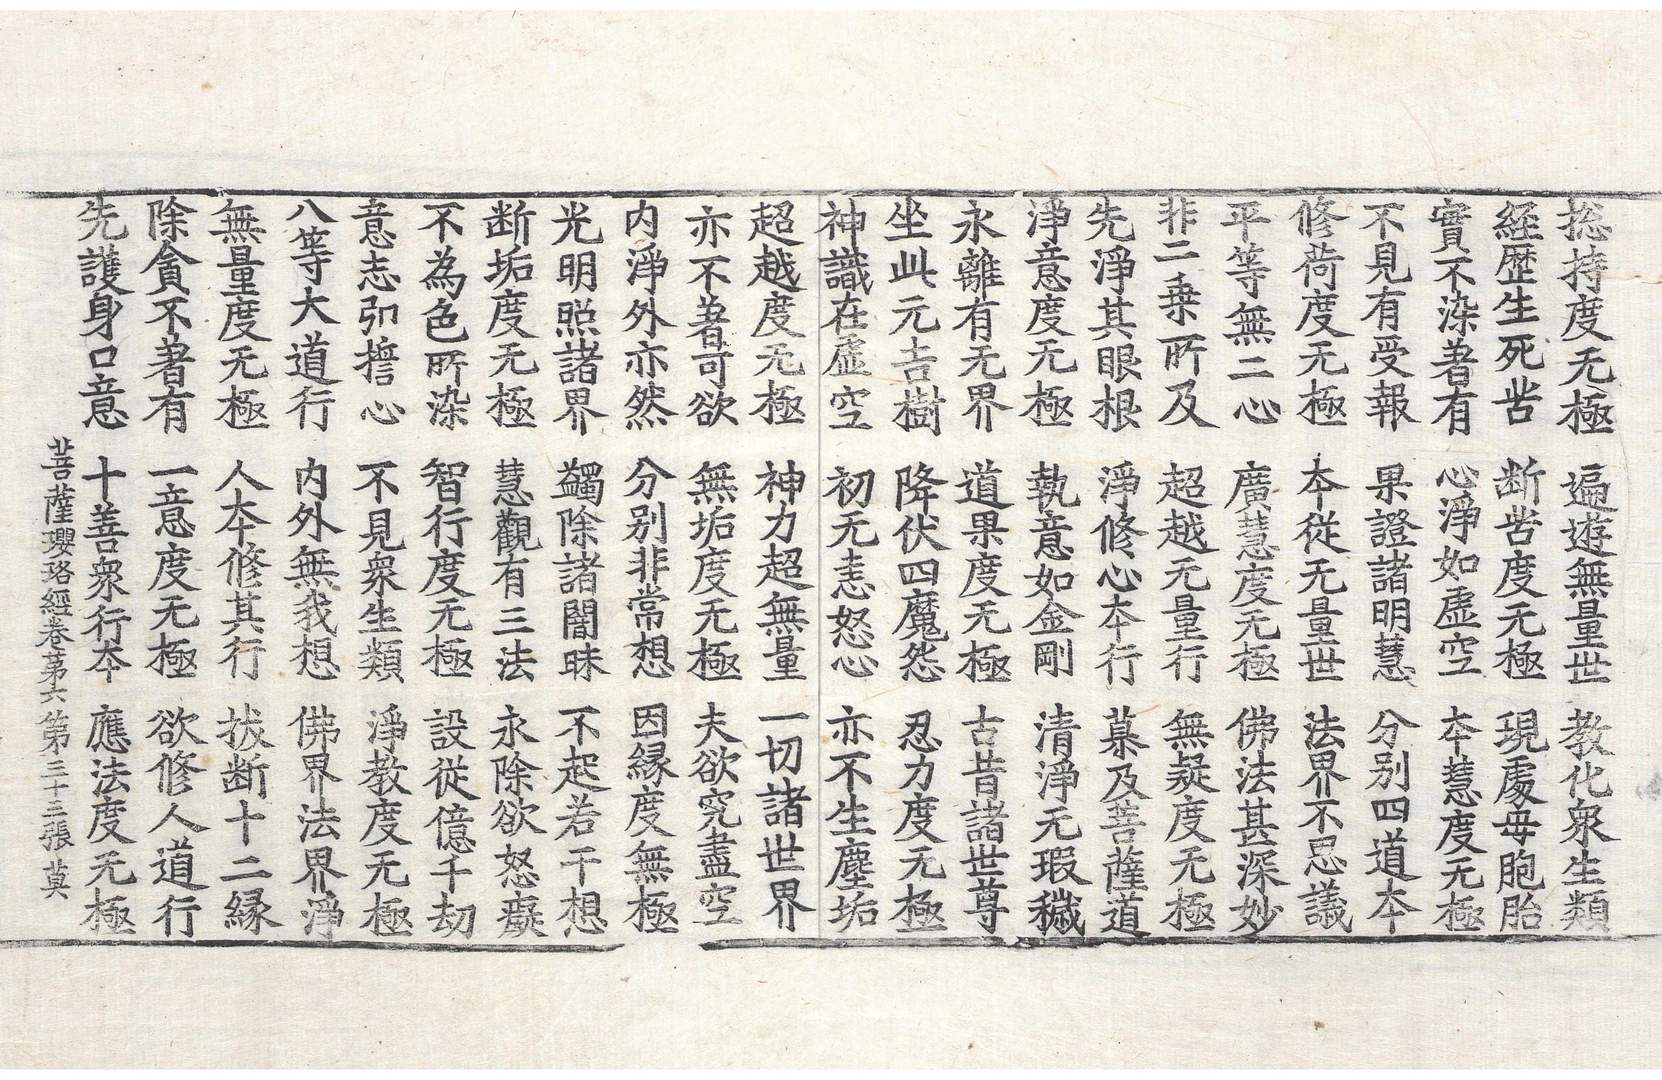 捴持度无極　遍遊無量世　教化衆生類
經歷生死苦　断苦度无極　現處母胞胎
實不染著有　心淨如虛空　本慧度无極
不見有受報　果證諸明慧　分別四道本
修荷度无極　本從无量世　法界不思議
平等無二心　廣慧度无極　佛法甚深妙
非二乗所及　超越无量行　無疑度无極
先淨其眼根　淨修心本行　慕及菩薩道
淨意度无極　執意如金剛　清淨无瑕穢
永離有无界　道果度无極　古昔諸世尊
坐此元吉樹　降伏四魔怨　忍力度无極
神識在虛空　初无恚怒心　亦不生塵垢
超越度无極　神力超無量　一切諸世界
亦不著可欲　無垢度无極　夫欲究盡空
内淨外亦然　分別非常想　因縁度無極
光明照諸界　蠲除諸闇昧　不起若干想
断垢度无極　慧觀有三法　永除欲怒癡
不為色所染　智行度无極　設従億千劫
意志弘誓心　不見衆生類　淨教度无極
八等大道行　内外無我想　佛界法界淨
無量度无極　人本修其行　拔断十二縁
除貪不著有　一意度无極　欲修人道行
先護身口意　十善衆行本　應法度无極
菩薩瓔珞經卷第六　第三十三張　莫